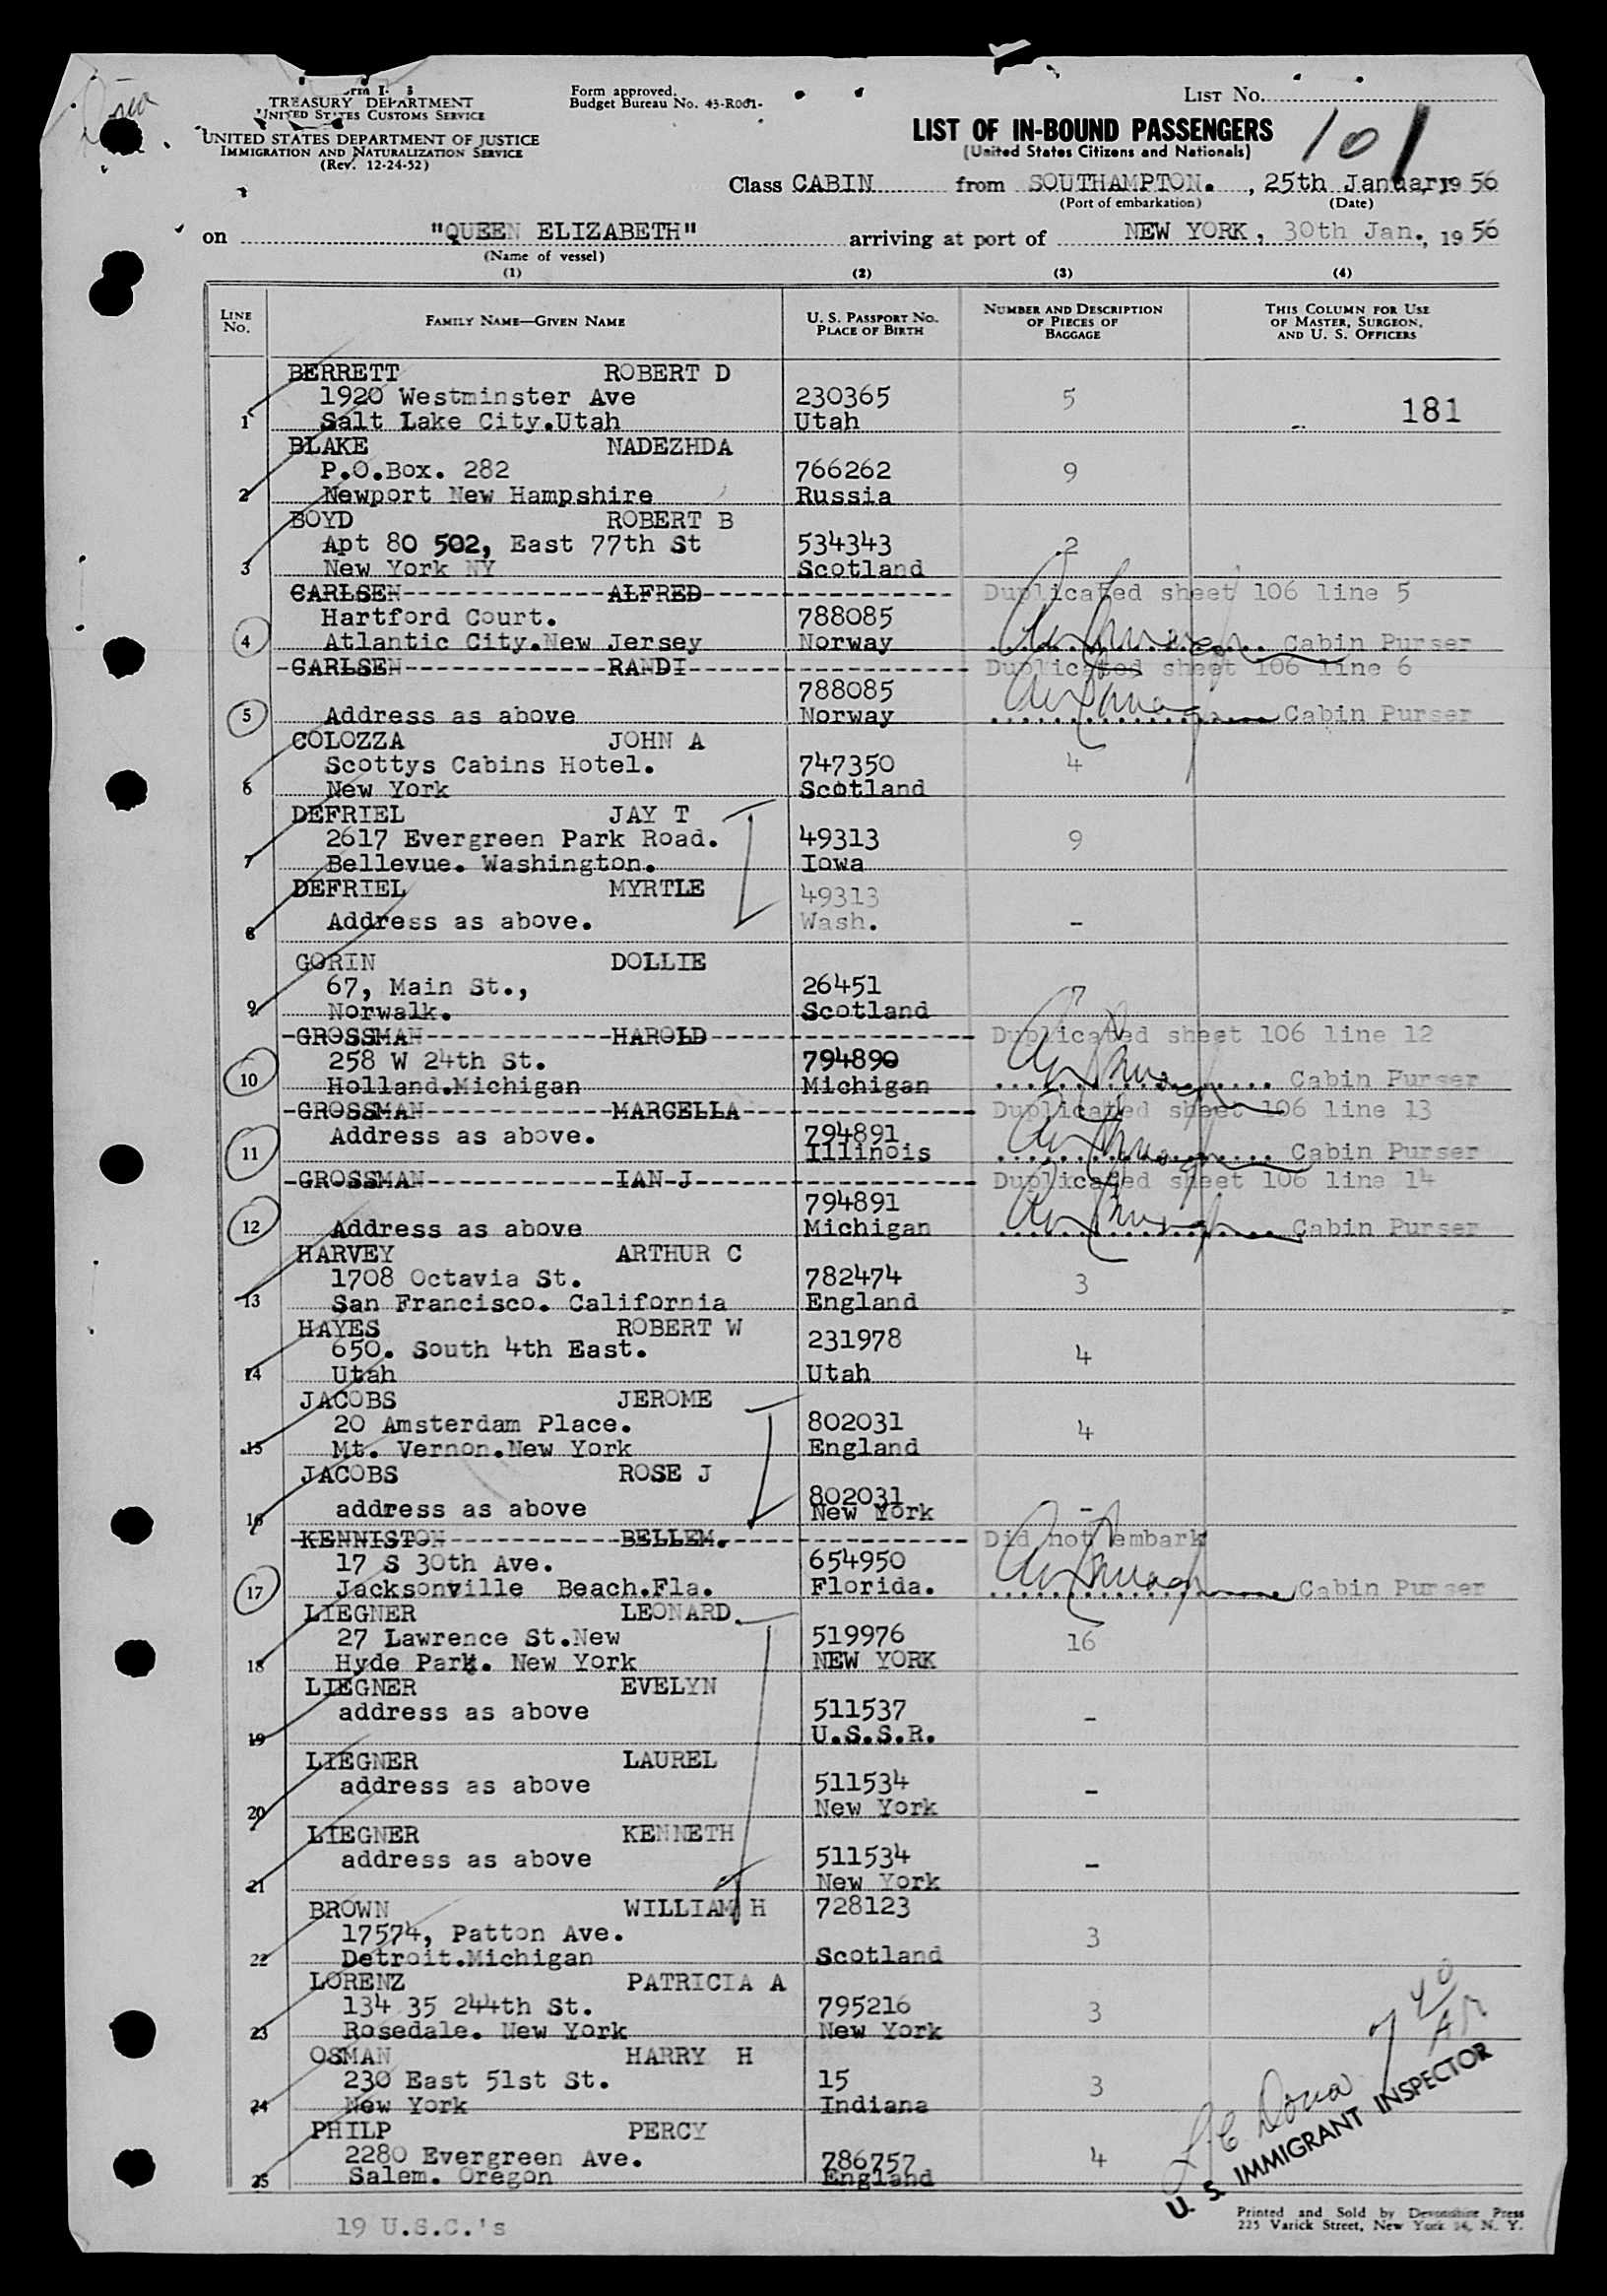 Form approved.
Budget Bureau No. 43-R001-
TREASURY DEPARTMENT
UNITED STATES CUSTOMS SERVICE
UNITED STATES DEPARTMENT OF JUSTICE
IMMIGRATION AND NATURALIZATION SERVICE
(Rev. 12-24-52)
LIST No.
LIST OF IN-BOUND PASSENGERS
(United States Citizens and Nationals)
101
Class CABIN from SOUTHAMPTON. , 25th January, 19 56
(Port of embarkation) (Date)
on "QUEEN ELIZABETH" arriving at port of NEW YORK, 30th Jan., 19 56
(Name of vessel)
(1) (2) (3) (4)
LINE No. FAMILY NAME—GIVEN NAME U. S. PASSPORT No. PLACE OF BIRTH NUMBER AND DESCRIPTION OF PIECES OF BAGGAGE THIS COLUMN FOR USE OF MASTER, SURGEON, AND U. S. OFFICERS
BERRETT ROBERT D
1920 Westminster Ave 230365 5 181
1 Salt Lake City.Utah Utah
BLAKE NADEZHDA
P.O.Box. 282 766262 9
2 Newport New Hampshire Russia
BOYD ROBERT B
Apt 80 502, East 77th St 534343 2
3 New York NY Scotland
CARLSEN ALFRED Duplicated sheet 106 line 5
Hartford Court. 788085
4 Atlantic City.New Jersey Norway Cabin Purser
CARLSEN RANDI Duplicated sheet 106 line 6
788085
5 Address as above Norway Cabin Purser
COLOZZA JOHN A
Scottys Cabins Hotel. 747350 4
6 New York Scotland
DEFRIEL JAY T
2617 Evergreen Park Road. 49313 9
7 Bellevue. Washington. Iowa
DEFRIEL MYRTLE 49313
8 Address as above. Wash. -
GORIN DOLLIE
67, Main St., 26451 7
9 Norwalk. Scotland
GROSSMAN HAROLD Duplicated sheet 106 line 12
258 W 24th St. 794890
10 Holland.Michigan Michigan Cabin Purser
GROSSMAN MARCELLA Duplicated sheet 106 line 13
Address as above. 794891
11 Illinois Cabin Purser
GROSSMAN IAN J Duplicated sheet 106 line 14
794891
12 Address as above Michigan Cabin Purser
HARVEY ARTHUR C
1708 Octavia St. 782474 3
13 San Francisco. California England
HAYES ROBERT W
650. South 4th East. 231978 4
14 Utah Utah
JACOBS JEROME
20 Amsterdam Place. 802031 4
15 Mt. Vernon.New York England
JACOBS ROSE J
802031
16 address as above New York -
KENNISTON BELLEM. Did not embark
17 S 30th Ave. 654950
17 Jacksonville Beach.Fla. Florida. Cabin Purser
LIEGNER LEONARD
27 Lawrence St.New 519976 16
18 Hyde Park. New York NEW YORK
LIEGNER EVELYN
address as above 511537 -
19 U.S.S.R.
LIEGNER LAUREL
address as above 511534 -
20 New York
LIEGNER KENNETH
address as above 511534 -
21 New York
BROWN WILLIAM H 728123
17574, Patton Ave. 3
22 Detroit.Michigan Scotland
LORENZ PATRICIA A
134 35 244th St. 795216 3
23 Rosedale. New York New York
OSMAN HARRY H
230 East 51st St. 15 3
24 New York Indiana
PHILP PERCY
2280 Evergreen Ave. 786757 4
25 Salem. Oregon England
U. S. IMMIGRANT INSPECTOR
19 U.S.C.'s
Printed and Sold by Devonshire Press
225 Varick Street, New York 14, N. Y.